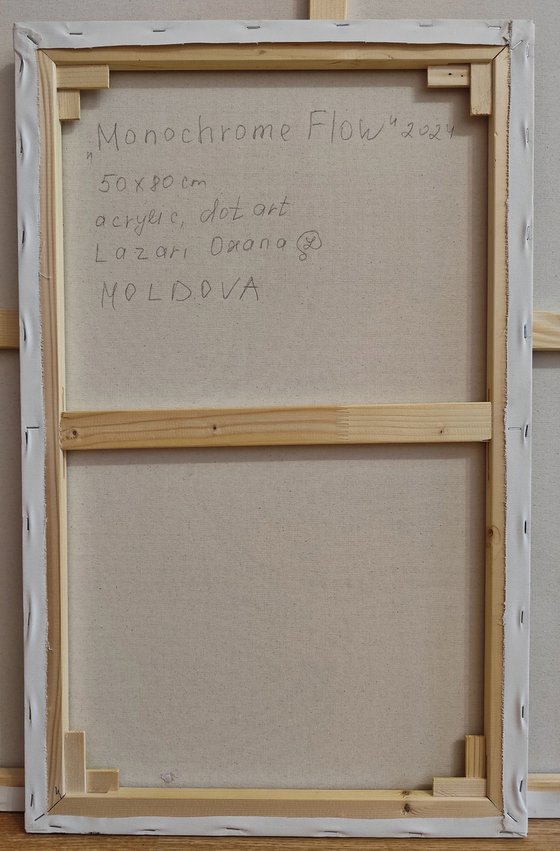 „Monochrome Flow" 2024
50x80 cm
acrylic, dot art
Lazari Oxana
MOLDOVA